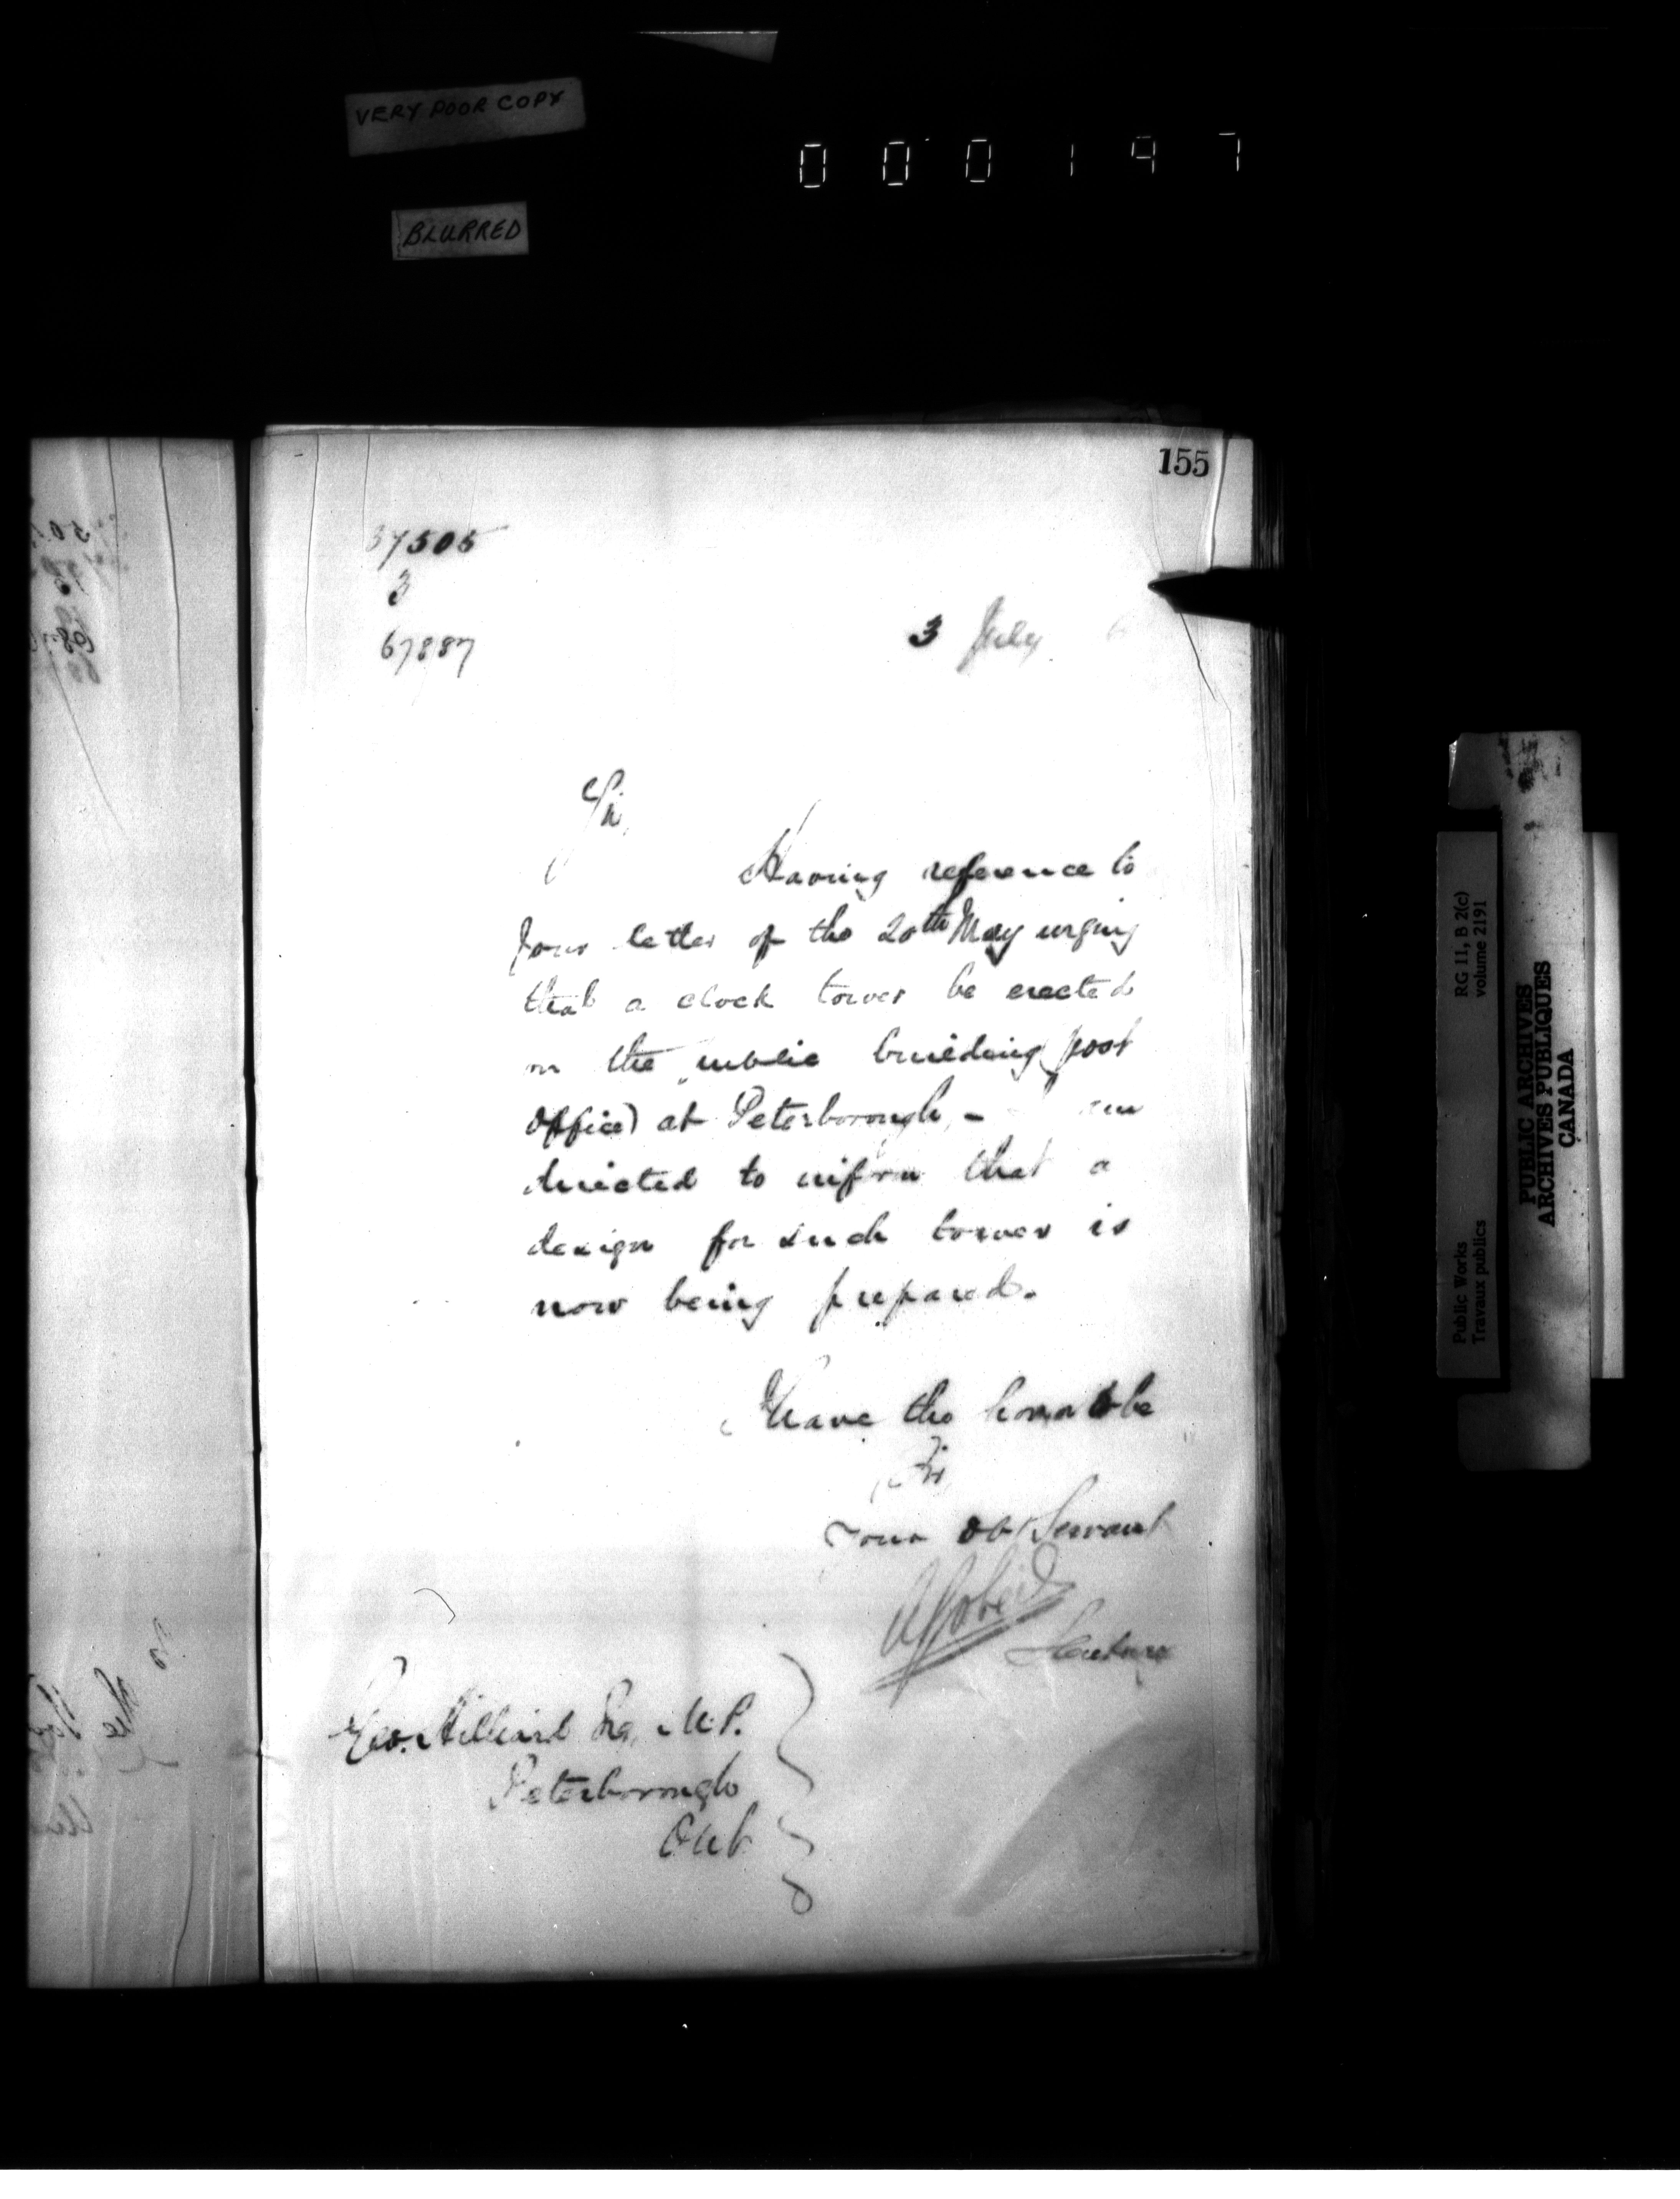 VERY POOR COPY
000197
BLURRED
155
37505
3
67887
3 July 6
Sir,
Having reference to
your letter of the 20th May urging
that a clock tower be erected
on the public building (post
office) at Peterborough, - I am
directed to inform that a
design for such tower is
now being prepared.
I have the honor to be
Sir,
Your Obt Servant
A Gobeil
Secretary
Geo. Hilliard Esq, M.P.
Peterborough
Ont
RG 11, B 2(c)
volume 2191
Public Works
Travaux publics
PUBLIC ARCHIVES
ARCHIVES PUBLIQUES
CANADA